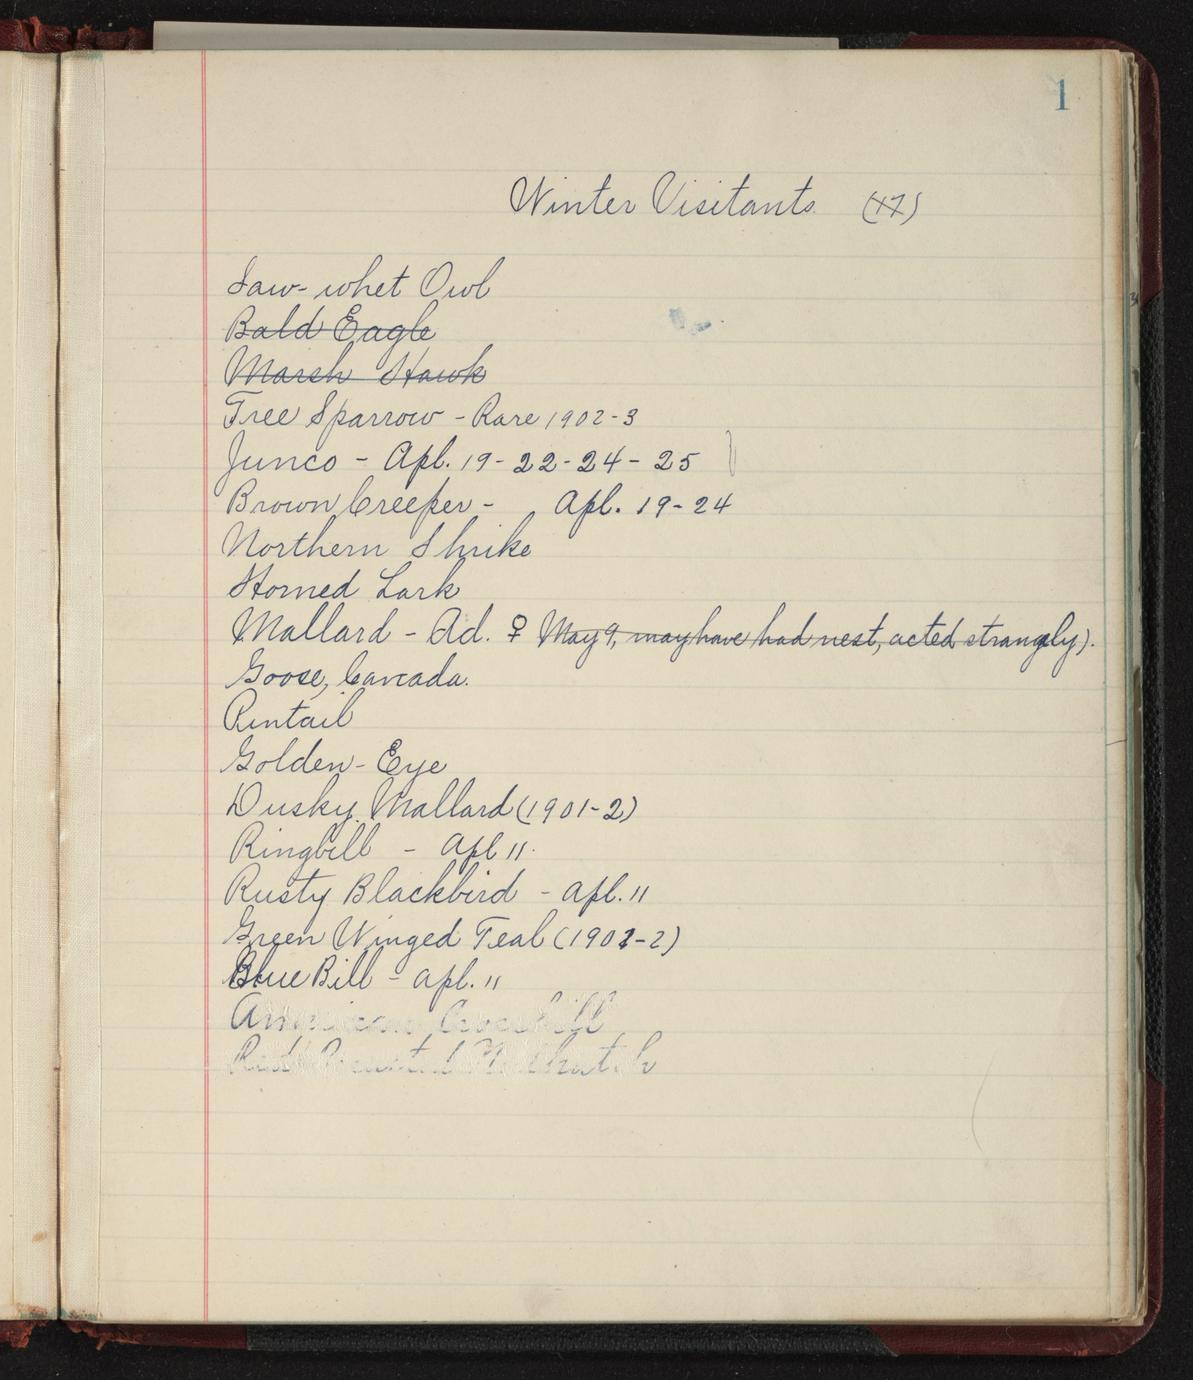 1
Winter Visitants (17)
Saw-whet Owl
Bald Eagle
Marsh Hawk
Tree Sparrow - Rare 1902-3
Junco - Apl. 19-22-24-25
Brown Creeper - Apl. 19-24
Northern Shrike
Horned Lark
Mallard - Ad. ♀ May 9, may have had nest, acted strangely).
Goose, Canada.
Pintail
Golden-Eye
Dusky Mallard (1901-2)
Ringbill - Apl 11.
Rusty Blackbird - apl. 11
Green Winged Teal (1901-2)
Blue Bill - apl. 11
American Crossbill
Red Breasted Nuthatch